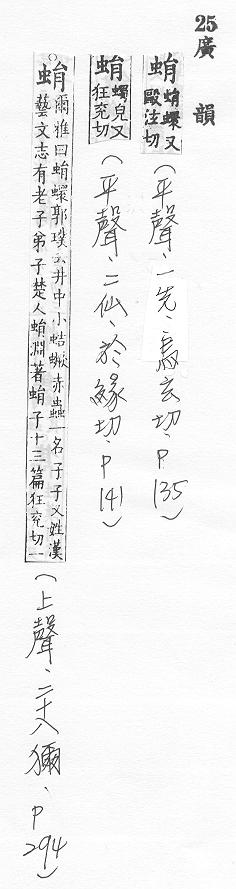 25廣韻
蜎蜎蠉又毆注切(平聲、一先、烏玄切、P135)
蜎蠋皃又狂兖切(平聲、二仙、於緣切、P141)
蜎爾雅曰蜎蠉郭璞云井中小蛣蟩赤蟲一名孑孑又姓漢藝文志有老子弟子楚人蜎淵著蜎子十三篇狂兖切一(上聲、二十八獮、P294)